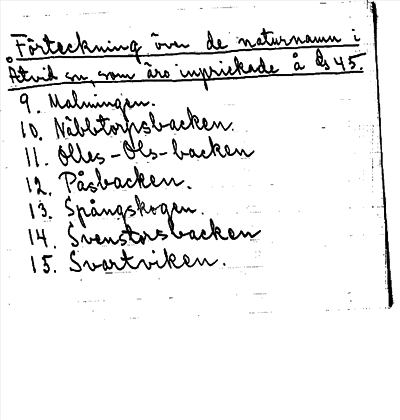 Förteckning över de naturnamn i
Åtvid sn, som äro inprickade å ds 45.
9. Malmingen.
10. Näbbtorpsbacken.
11. Olles-Ols-backen
12. Påsbacken.
13. Spångskogen.
14. Svenstorsbacken
15. Svartviken.